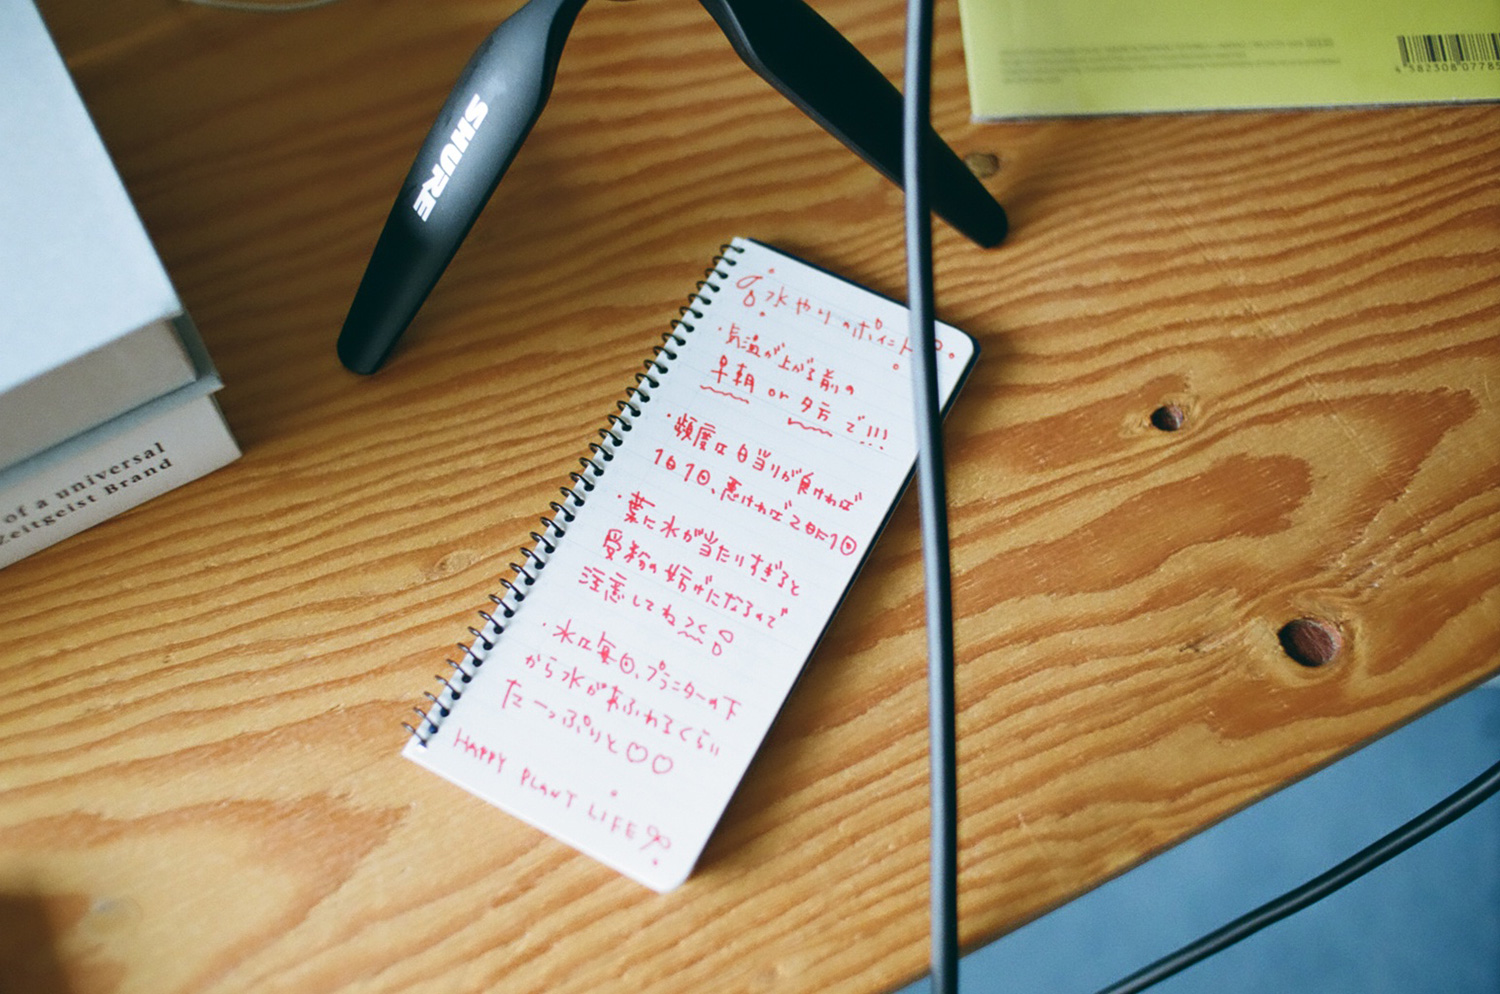 SHURE
4 582308 07785
of a universal
Zeitgeist Brand
水やりのポイント
・気温が上がる前の
早朝 or 夕方で!!!
・頻度は日当りが良ければ
1日1回、悪ければ2日に1回
・葉に水が当たりすぎると
受粉の妨げになるので
注意してね
・水は毎回、プランターの下
から水があふれるくらい
たーっぷりと♡♡
HAPPY PLANT LIFE